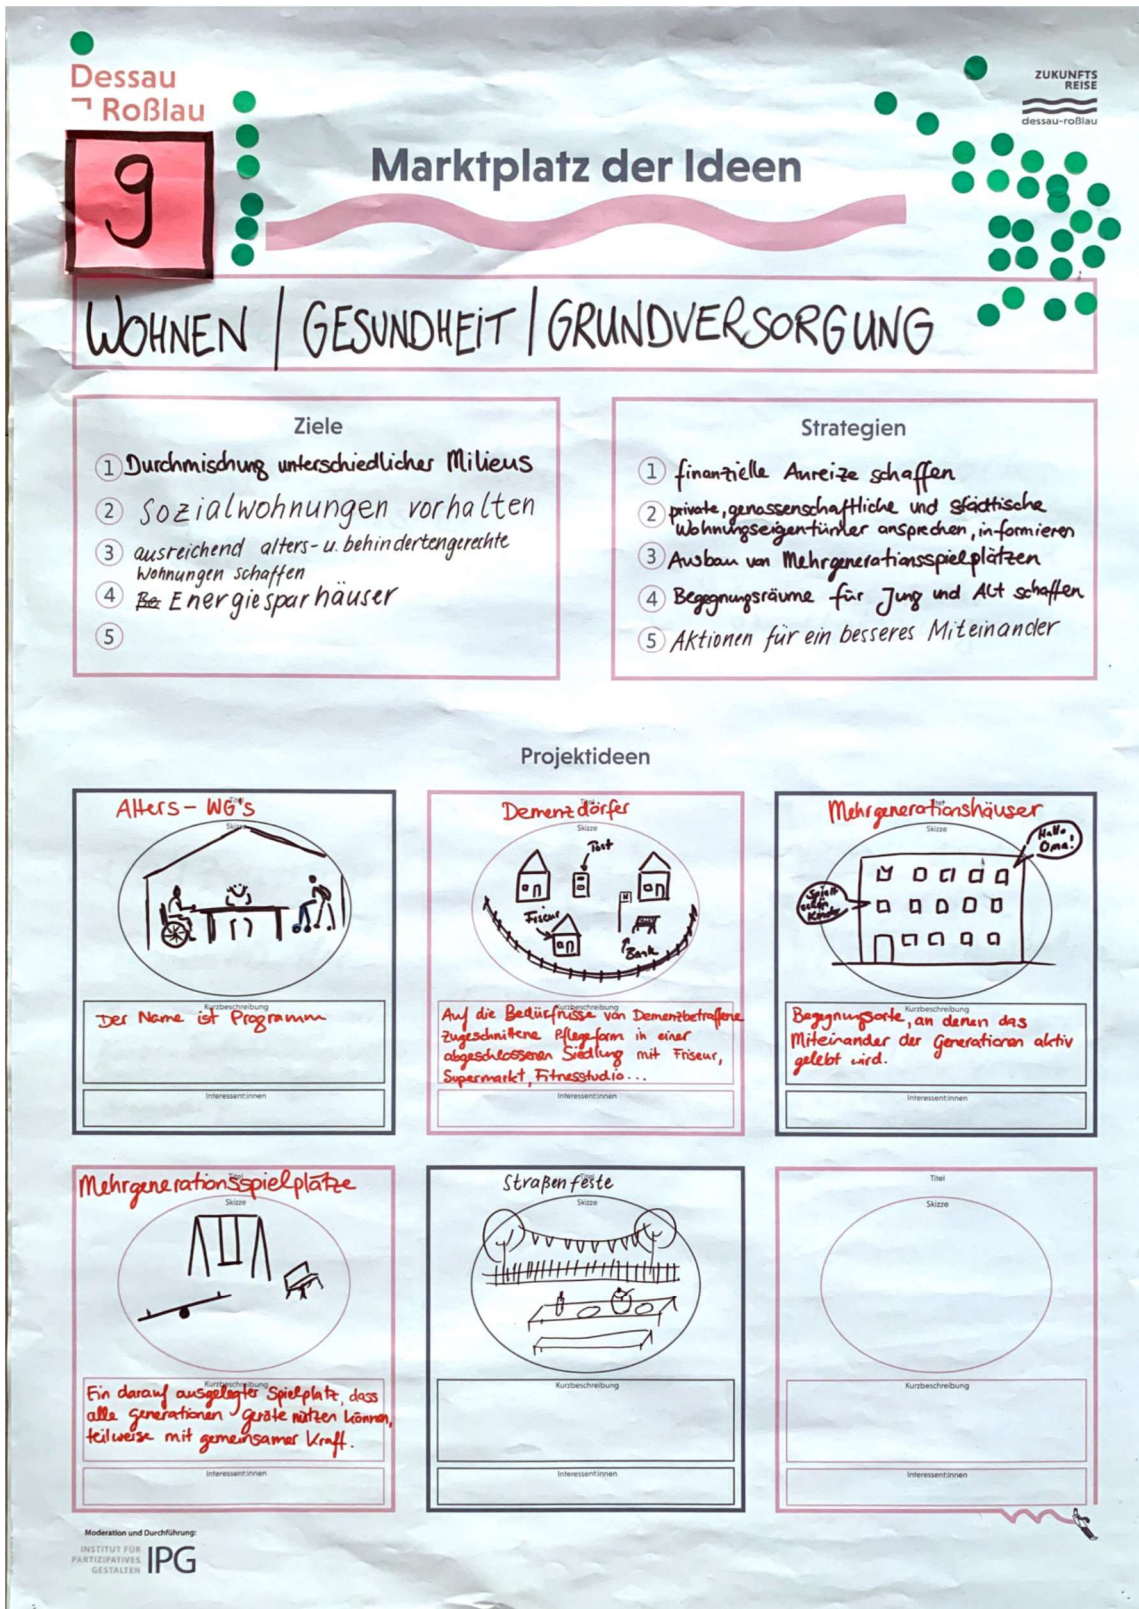 Dessau
Roßlau
ZUKUNFTS
REISE
dessau-roßlau
9
Marktplatz der Ideen
WOHNEN / GESUNDHEIT / GRUNDVERSORGUNG
Ziele
1 Durchmischung unterschiedlicher Milieus
2 Sozialwohnungen vorhalten
3 ausreichend alters- u. behindertengerechte
Wohnungen schaffen
4 Energiesparhäuser
5
Strategien
1 finanzielle Anreize schaffen
2 private, genossenschaftliche und städtische
Wohnungseigentümer ansprechen, informieren
3 Ausbau von Mehrgenerationsspielplätzen
4 Begegnungsräume für Jung und Alt schaffen
5 Aktionen für ein besseres Miteinander
Projektideen
Titel
Alters-WG's
Skizze
Kurzbeschreibung
Der Name ist Programm
Interessent:innen
Titel
Demenzdörfer
Skizze
Post
Fiseur
H
Bank
Kurzbeschreibung
Auf die Bedürfnisse von Demenzbetroffene
zugeschnittene Pflegeform in einer
abgeschlossenen Siedlung mit Friseur,
Supermarkt, Fitnesstudio...
Interessent:innen
Titel
Mehrgenerationshäuser
Skizze
Hallo
Oma!
Spielt
schön
Kinder
Kurzbeschreibung
Begegnungsorte, an denen das
Miteinander der Generationen aktiv
gelebt wird.
Interessent:innen
Titel
Mehrgenerationsspielplätze
Skizze
Kurzbeschreibung
Ein darauf ausgelegter Spielplatz, dass
alle Generationen Geräte nutzen können,
teilweise mit gemeinsamer Kraft.
Interessent:innen
Titel
Straßenfeste
Skizze
Kurzbeschreibung
Interessent:innen
Titel
Skizze
Kurzbeschreibung
Interessent:innen
Moderation und Durchführung:
INSTITUT FÜR
PARTIZIPATIVES
GESTALTEN
IPG